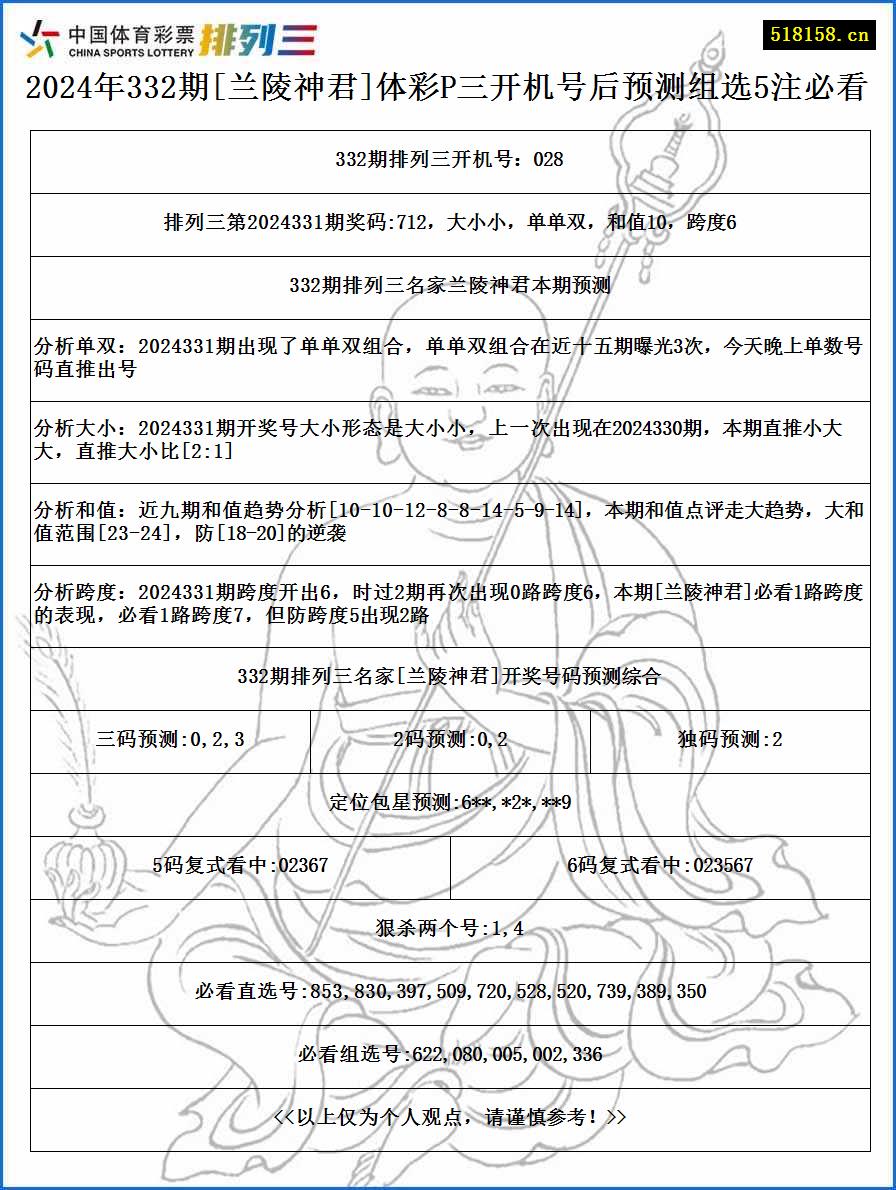 中国体育彩票
CHINA SPORTS LOTTERY
排列三
518158.cn
2024年332期[兰陵神君]体彩P三开机号后预测组选5注必看
332期排列三开机号：028
排列三第2024331期奖码:712，大小小，单单双，和值10，跨度6
332期排列三名家兰陵神君本期预测
分析单双：2024331期出现了单单双组合，单单双组合在近十五期曝光3次，今天晚上单数号
码直推出号
分析大小：2024331期开奖号大小形态是大小小，上一次出现在2024330期，本期直推小大
大，直推大小比[2:1]
分析和值：近九期和值趋势分析[10-10-12-8-8-14-5-9-14]，本期和值点评走大趋势，大和
值范围[23-24]，防[18-20]的逆袭
分析跨度：2024331期跨度开出6，时过2期再次出现0路跨度6，本期[兰陵神君]必看1路跨度
的表现，必看1路跨度7，但防跨度5出现2路
332期排列三名家[兰陵神君]开奖号码预测综合
三码预测:0,2,3
2码预测:0,2
独码预测:2
定位包星预测:6**,*2*,**9
5码复式看中:02367
6码复式看中:023567
狠杀两个号:1,4
必看直选号:853,830,397,509,720,528,520,739,389,350
必看组选号:622,080,005,002,336
<<以上仅为个人观点，请谨慎参考！>>